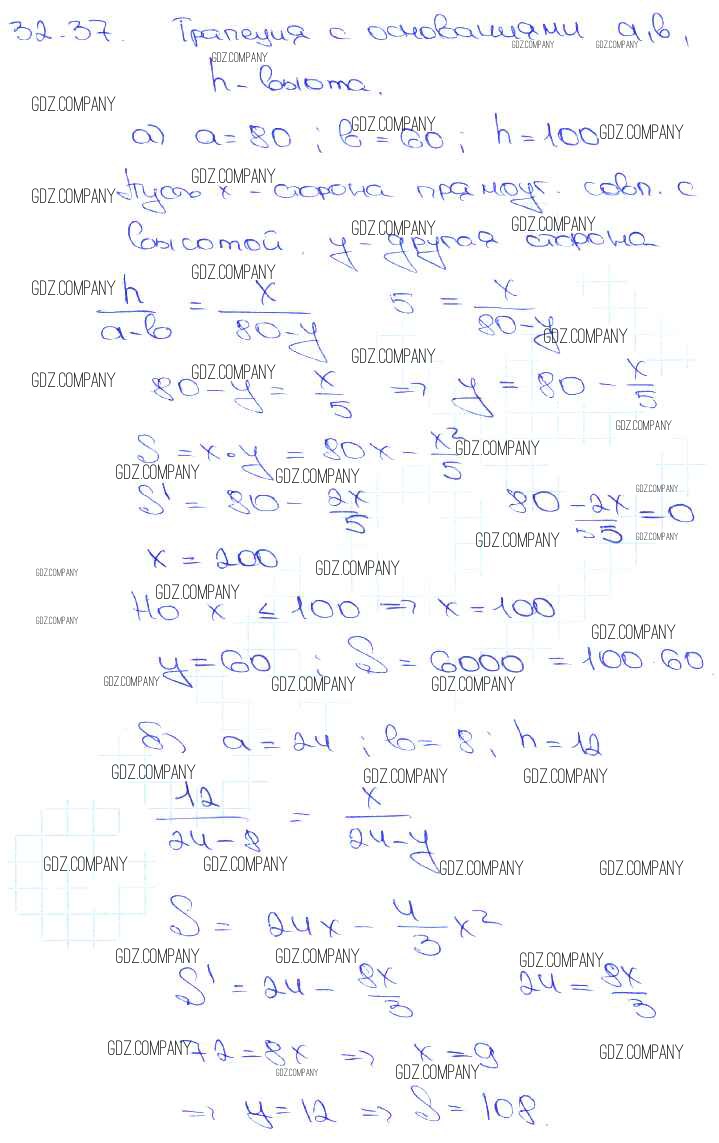 32.37. Трапеция с основаниями a, b,
h - высота.
а) a = 80 ; b = 60 ; h = 100
Пусть x - сторона прямоуг. совп. с
высотой. y - другая сторона
h/(a-b) = x/(80-y)    5 = x/(80-y)
80 - y = x/5 => y = 80 - x/5
S = x·y = 80x - x²/5
S' = 80 - 2x/5    80 - 2x/55 = 0
x = 200
Но x ≤ 100 => x = 100
y = 60 ; S = 6000 = 100·60.
б) a = 24 ; b = 8 ; h = 12
12/(24-8) = x/(24-y)
S = 24x - 4/3 x²
S' = 24 - 8x/3    24 = 8x/3
72 = 8x => x = 9
=> y = 12 => S = 108.
GDZ.COMPANY